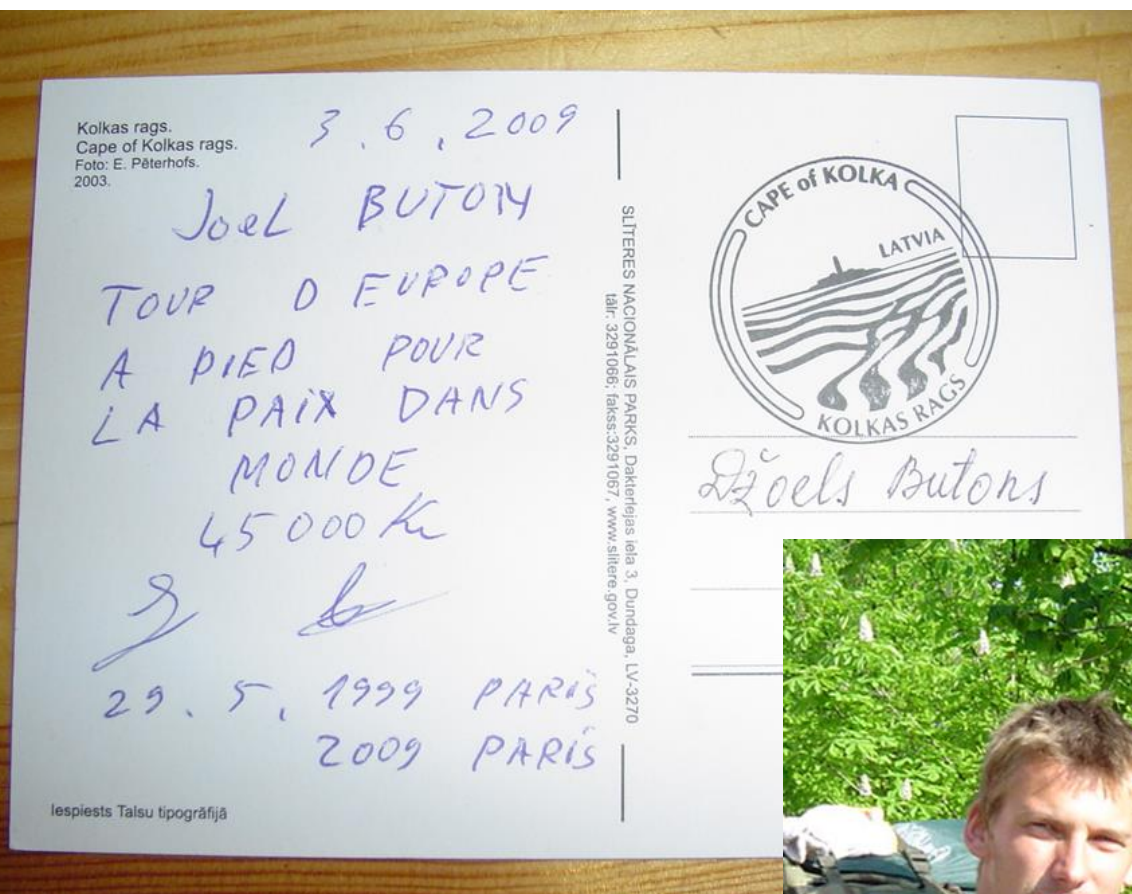 Kolkas rags.
Cape of Kolkas rags.
Foto: E. Pēterhofs.
2003.
3.6.2009
Joel BUTON
TOUR D EUROPE
A PIED POUR
LA PAIX DANS
MONDE
45000 Km
29.5.1999 PARIS
2009 PARIS
Iespiests Talsu tipogrāfijā
SLĪTERES NACIONĀLAIS PARKS, Dakterlejas iela 3, Dundaga, LV-3270
tālr. 3291066; fakss:3291067, www.slitere.gov.lv
CAPE of KOLKA
LATVIA
KOLKAS RAGS
Džoels Butons